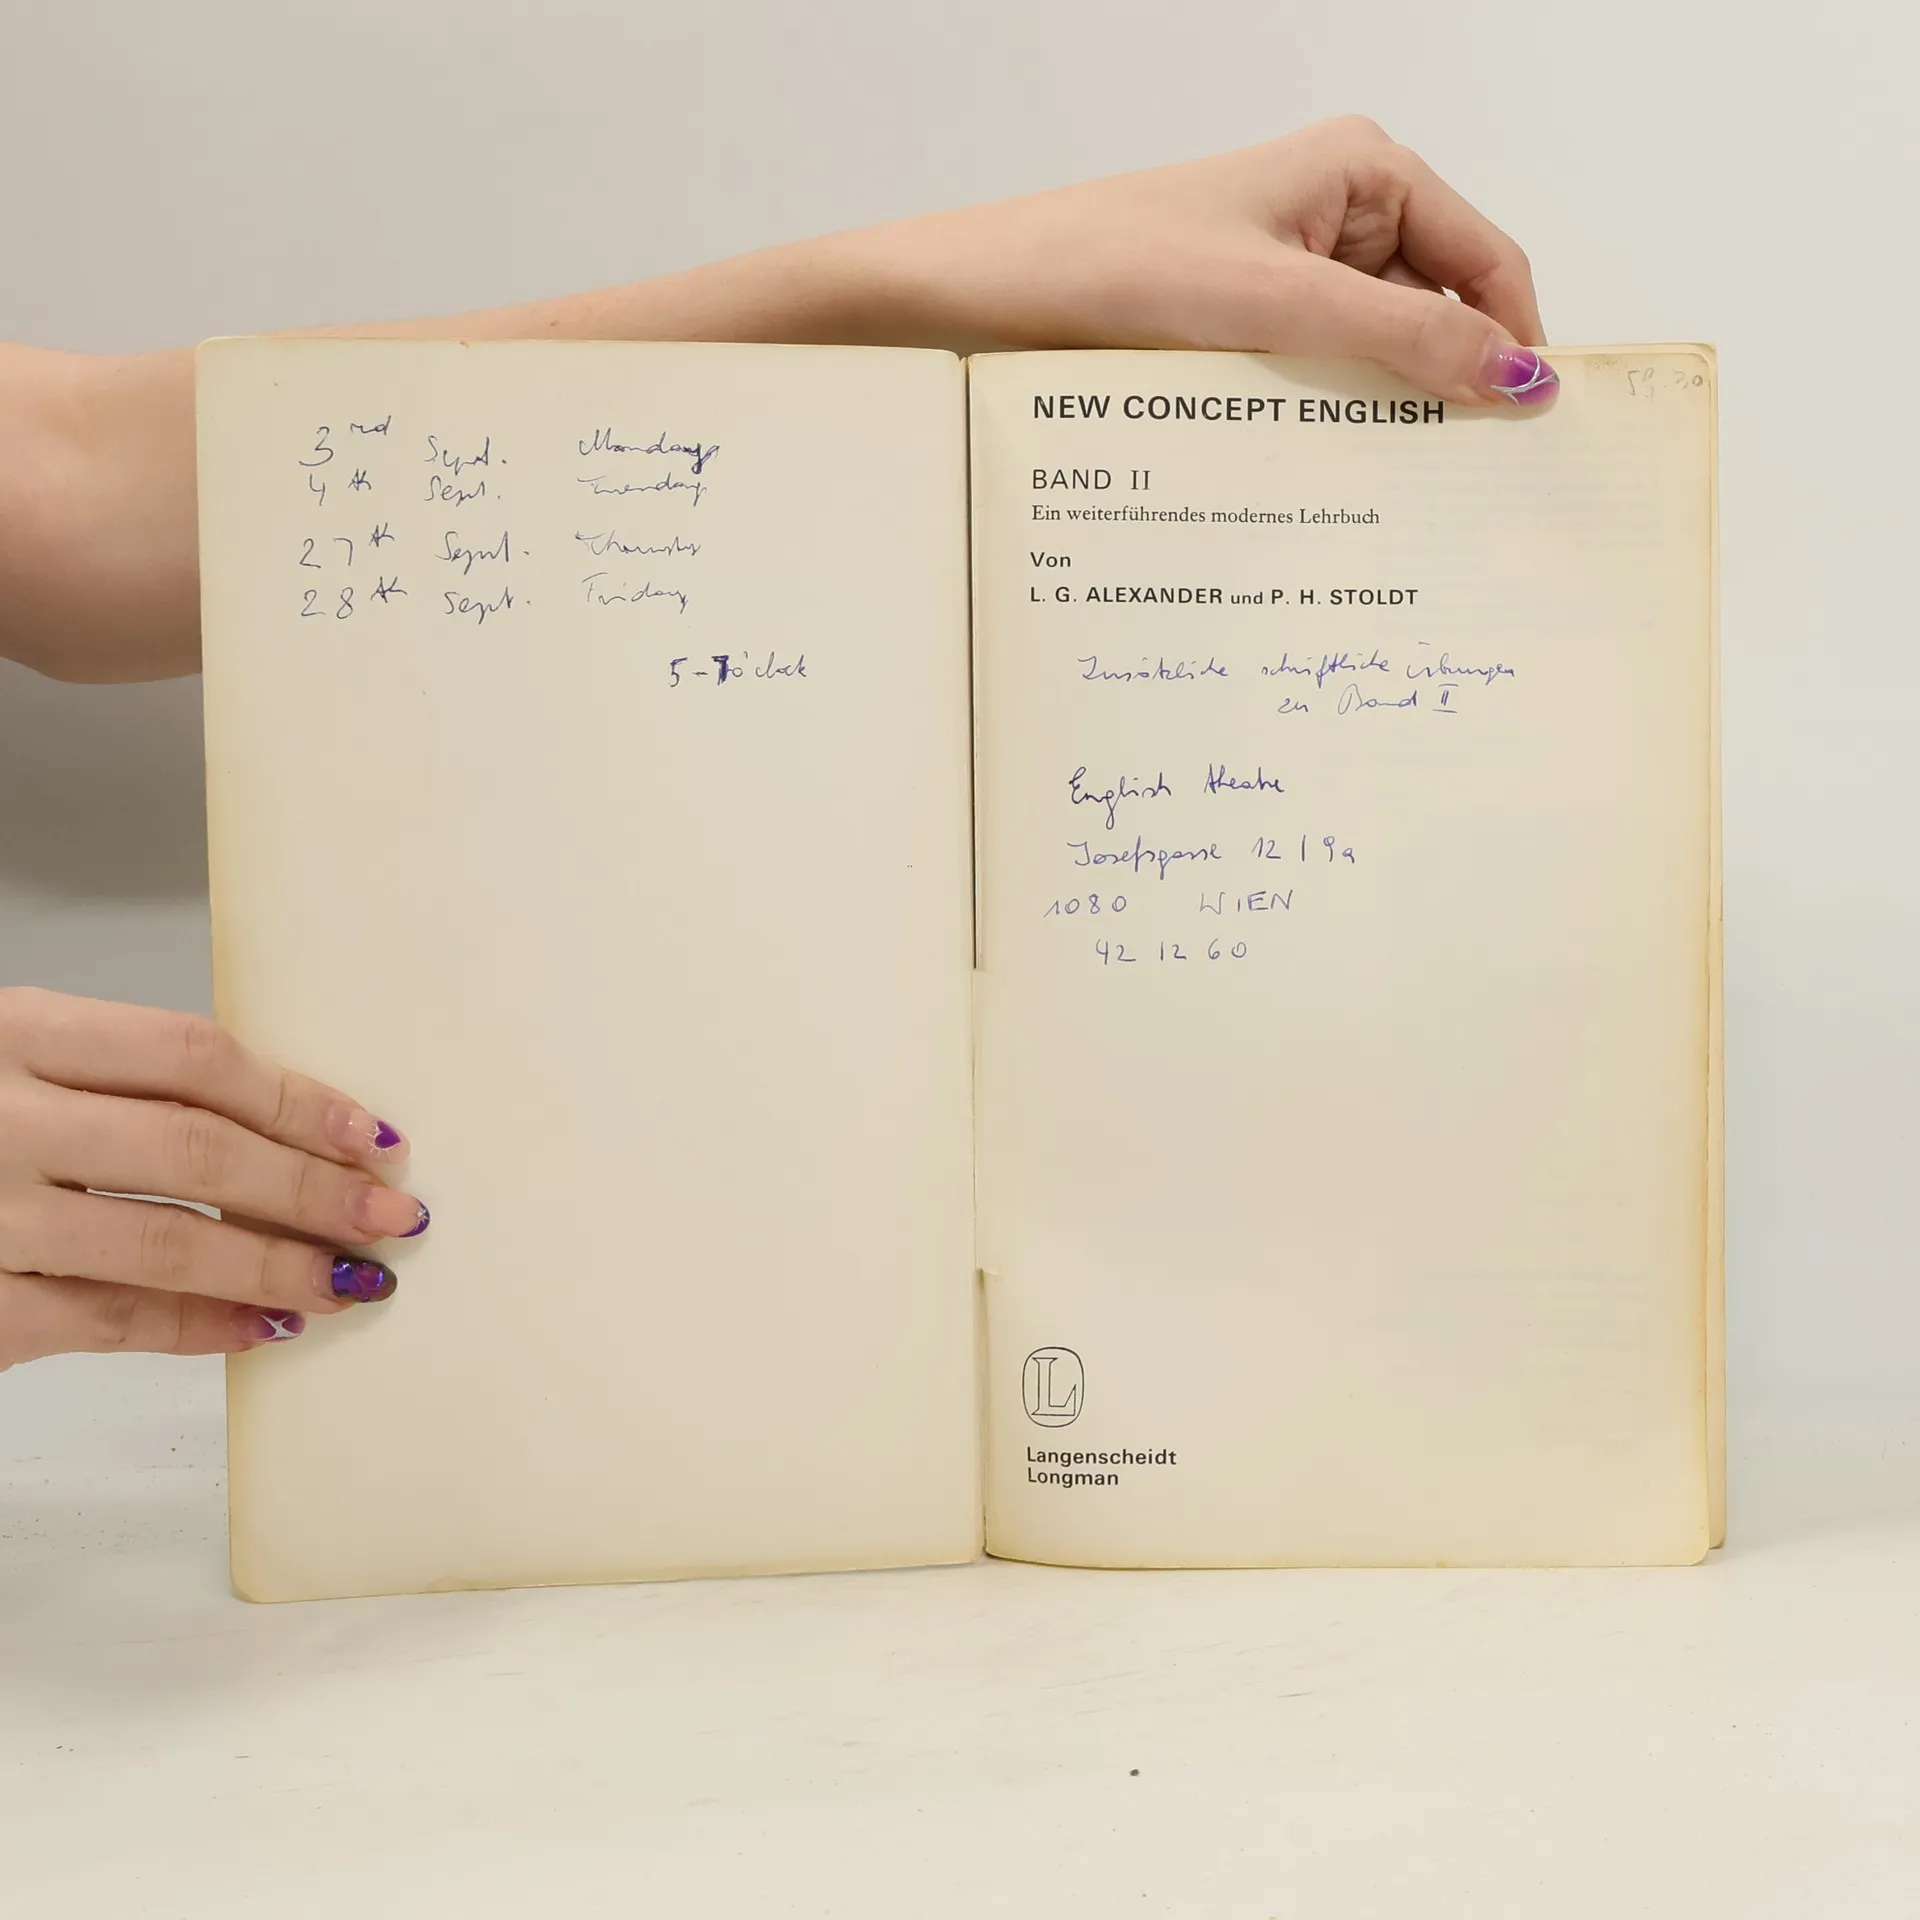 3rd Sept. Monday
4th Sept. Tuesday
27th Sept. Thursday
28th Sept. Friday
5-7 o'clock
NEW CONCEPT ENGLISH
BAND II
Ein weiterführendes modernes Lehrbuch
Von
L. G. ALEXANDER und P. H. STOLDT
Zusätzliche schriftliche Übungen
zu Band II
English theatre
Josefsgasse 12 / 9a
1080 WIEN
42 12 60
L
Langenscheidt
Longman